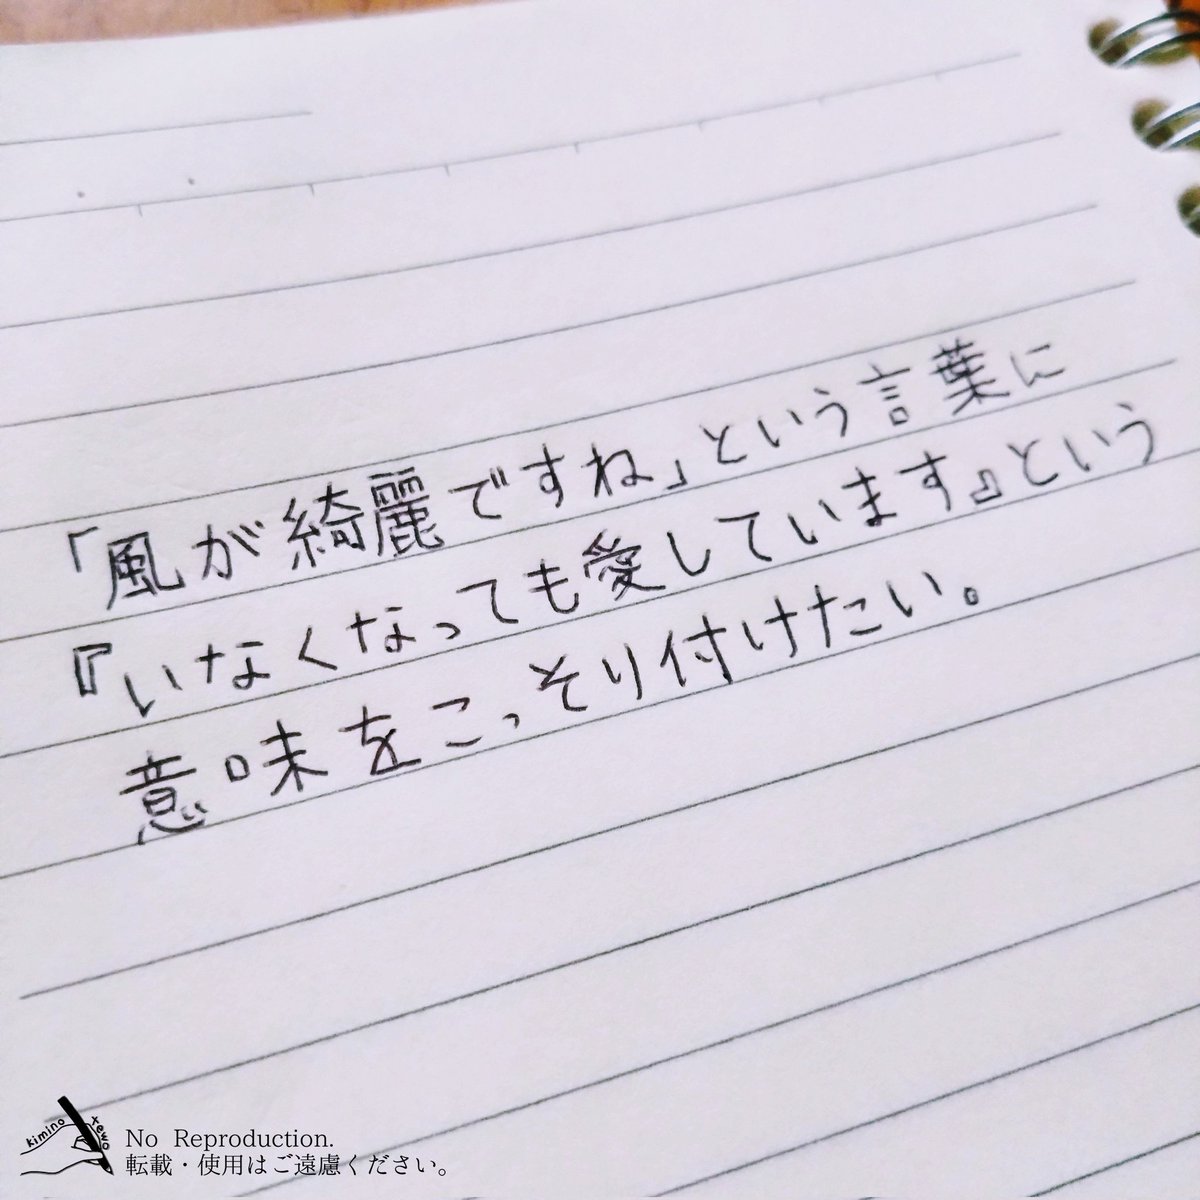 「風が綺麗ですね」という言葉に
『いなくなっても愛しています』という
意味をこっそり付けたい。
kimino tewo
No Reproduction.
転載・使用はご遠慮ください。